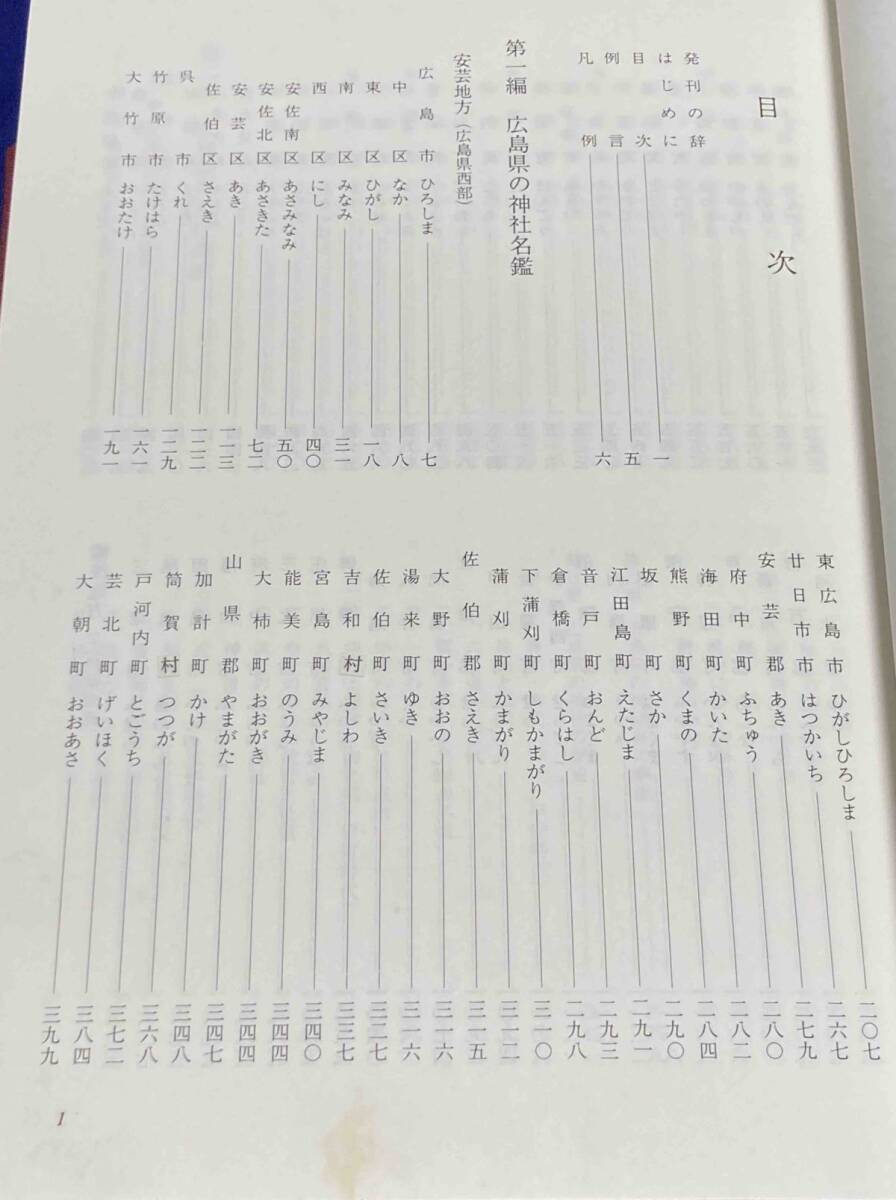 目次
発刊の辞
はじめに
目次 一
例言 五
凡例 六
第一編 広島県の神社名鑑
安芸地方(広島県西部)
広島市 ひろしま 七
中区 なか 八
東区 ひがし 一八
南区 みなみ 三一
西区 にし 四〇
安佐南区 あさみなみ 五〇
安佐北区 あさきた 七二
安芸区 あき 一一三
佐伯区 さえき 一二二
呉市 くれ 一二九
竹原市 たけはら 一六一
大竹市 おおたけ 一九一
東広島市 ひがしひろしま 二〇七
廿日市市 はつかいち 二六七
安芸郡 あき 二七九
府中町 ふちゅう 二八〇
海田町 かいた 二八二
熊野町 くまの 二八四
坂町 さか 二九〇
江田島町 えたじま 二九一
音戸町 おんど 二九三
倉橋町 くらはし 二九八
下蒲刈町 しもかまがり 三一〇
蒲刈町 かまがり 三一二
佐伯郡 さえき 三一五
大野町 おおの 三一六
湯来町 ゆき 三一六
佐伯町 さいき 三二七
吉和村 よしわ 三三七
宮島町 みやじま 三四〇
能美町 のうみ 三四四
大柿町 おおがき 三四四
山県郡 やまがた 三四七
加計町 かけ 三四八
筒賀村 つつが 三六八
戸河内町 とごうち 三七二
芸北町 げいほく 三八四
大朝町 おおあさ 三九九
1